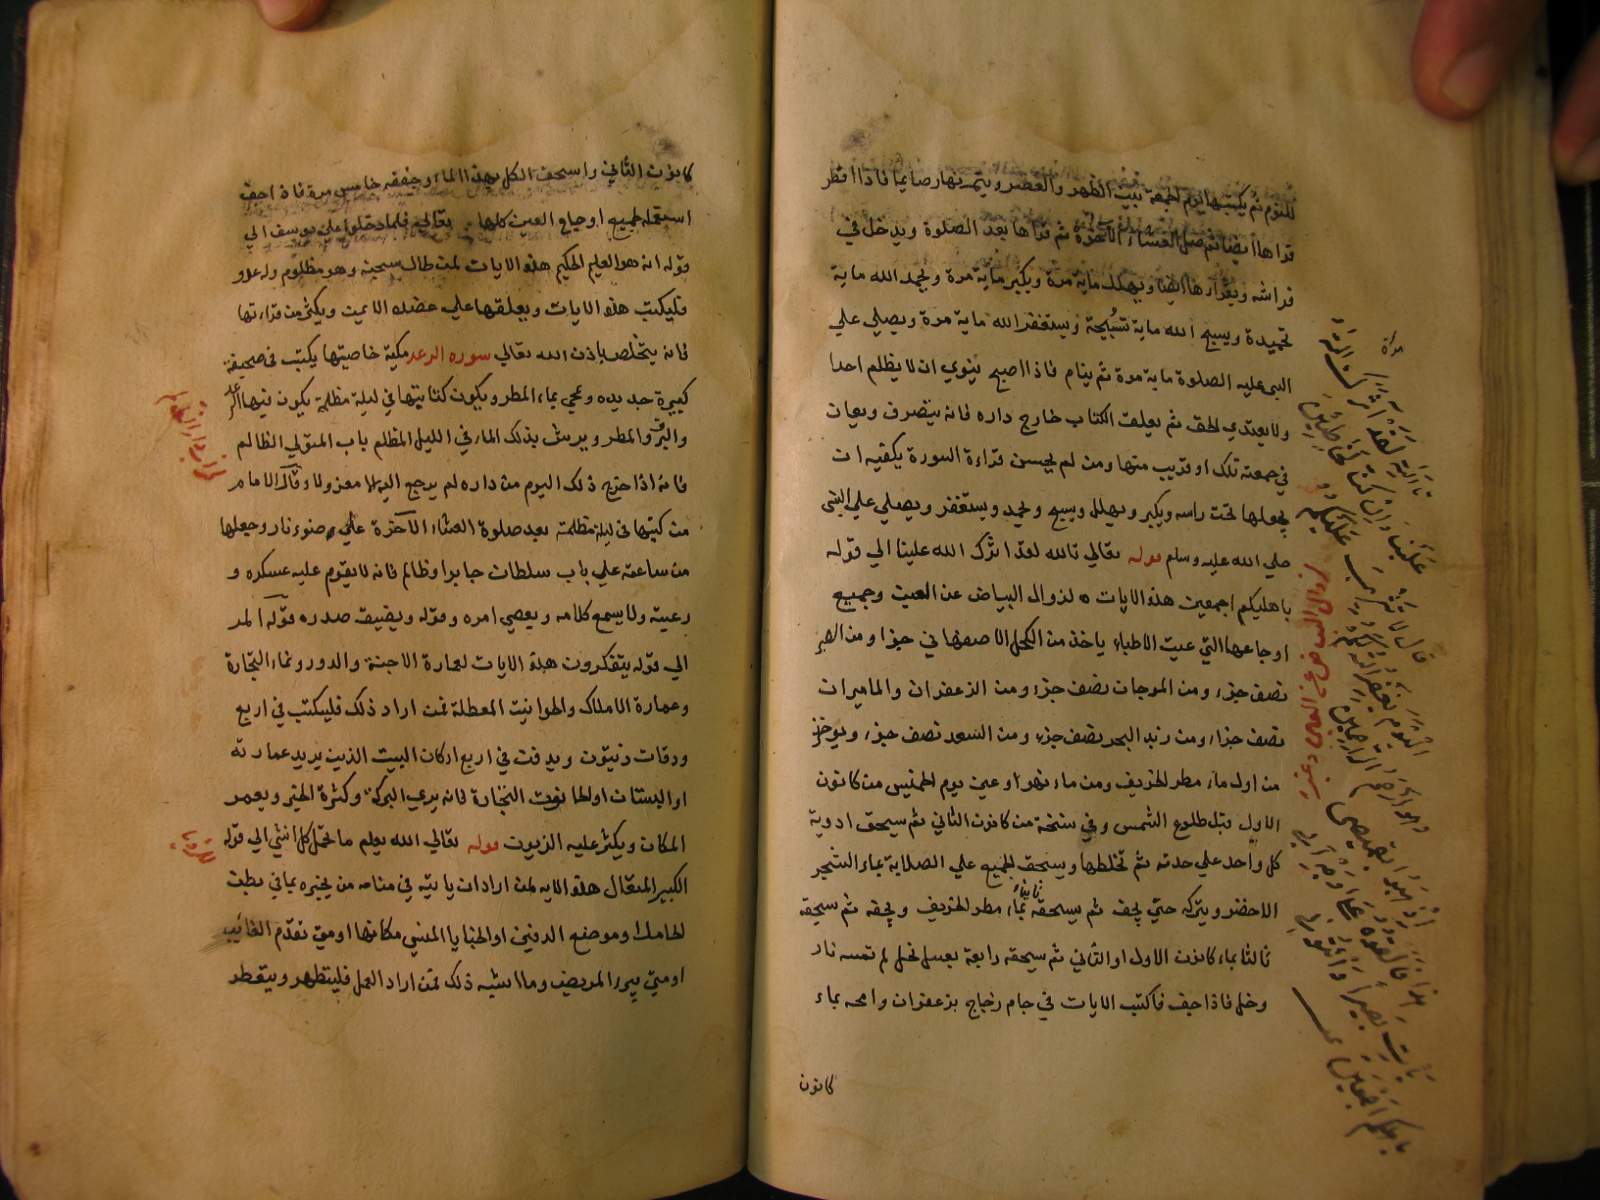 للنوم ثم يكتبها يوم الجمعة بين الظهر والعصر ويتم نهار صايما فاذا افطر
قراها ايضا ثم صلى العشاء الاخرة ثم قراها بعد الصلوة ويدخل في
فراشه ويقراها ايضا ويهلل ماية مرة ويكبر ماية مرة ويحمد الله ماية
تحميدة ويسبح الله ماية تسبيحة ويستغفر الله ماية مرة ويصلي علي
النبى عليه الصلوة ماية مرة ثم ينام فاذا اصبح ينوي ان لا يظلم احدا
ولا يعتدي لحق ثم يعلق الكتاب خارج داره فانه ينصرف ويعان
في جمعته تلك او قريب منها ومن لم يحسن قراءة السورة يكفيه ان
يجعلها تحت راسه ويكبر ويهلل ويسبح ويحمد ويستغفر ويصلي علي النبي
صلي الله عليه وسلم قوله تعالي تالله لقد اثرك الله علينا الي قوله
باهليكم اجمعين هذه الايات لزوال البياض عن العين وجميع
اوجاعها التي عيت الاطباء ياخذ من الكحل الاصفهاني جزا ومن
نصف جزء ومن المرجان نصف جزء ومن الزعفران والماميران
نصف جزا ومن زبد البحر نصف جزء ومن السعد نصف جزء ويوخذ
من اول ماء مطر الخريف ومن ماء نهر او عين يوم الخميس من كانون
الاول قبل طلوع الشمس وفي نسخة من كانون الثاني ثم يسحق ادوية
كل واحد علي حدته ثم تخلطها ويسحق الجميع علي الصلاية بماء الشجر
الاخضر ويتركه حتي يجف ثم يسحقه ثانيا بماء مطر الخريف ويجفه ثم يسحقه
ثالثا بماء كانون الاول او الثاني ثم يسحقه رابعة بعسل نحل لم تمسه نار
وخل فاذا جف فاكتب الايات في جام زجاج بزعفران وامحه بماء
كانون
مراة
تالله لقد آثرك الله
علينا وان كنا لخاطئين
قال لا تثريب عليكم
اليوم يغفر الله لكم
وهو ارحم الراحمين
اذهبوا بقميصي
هذا فالقوه على وجه ابي
يات بصيرا واتوني
باهلكم اجمعين
لزوال البياض عن العين وغيره
كانون الثاني واسحق الكل بهذا الماء وجففه خامس مرة فاذا جف
استعمله لجميع اوجاع العين كلها تعالي فلما دخلوا علي يوسف الي
قوله انه هو العليم الحكيم هذه الايات لمن طال سجنه وهو مظلوم وله عدو
فليكتب هذه الايات ويعلقها علي عضده الايمن ويكثر من قراءتها
فانه يتخلص باذن الله تعالي سورة الرعد مكية خاصيتها يكتب في صحيفة
كبيرة جديده وتمحي بماء المطر ويكون كتابتها في ليلة مظلمة يكون فيها الرعد
والبرق والمطر ويرش بذلك الماء في الليل المظلم باب المتولي الظالم
فانه اذا خرج ذلك اليوم من داره لم يرجع اليه الا معزولا وقال الامام
من كتبها في ليلة مظلمة بعد صلوة العشاء الآخرة علي ضوء نار وجعلها
من ساعته علي باب سلطان جابرا وظالم فانه لا يقوم عليه عسكره و
رعيته ولا يسمع كلامه ويعصي امره وقوله ويضيق صدره قوله المر
الي قوله يتفكرون هذه الايات لعمارة الاجنة والدور ونماء التجارة
وعمارة الاملاك والحوانيت المعطلة فمن اراد ذلك فليكتب في اربع
ورقات زيتون ويدفن في اربع اركان البيت الذين يريد عمارته
او البستان او الحانوت التجارة فانه يري البركة وكثرة الخير ويعمر
المكان ويكثر عليه الزبون قوله تعالي الله يعلم ما تحمل كل انثي الي قوله
الكبير المتعال هذه الايه لمن اراد ان ياتيه في منامه من يخبره بما في بطن
الحامل او موضع الدفين او الخبايا المنسي مكانها او متي تقدم الغائب
او متي يبرء المريض وما اشبه ذلك فمن اراد العمل فليتطهر ويتعطر